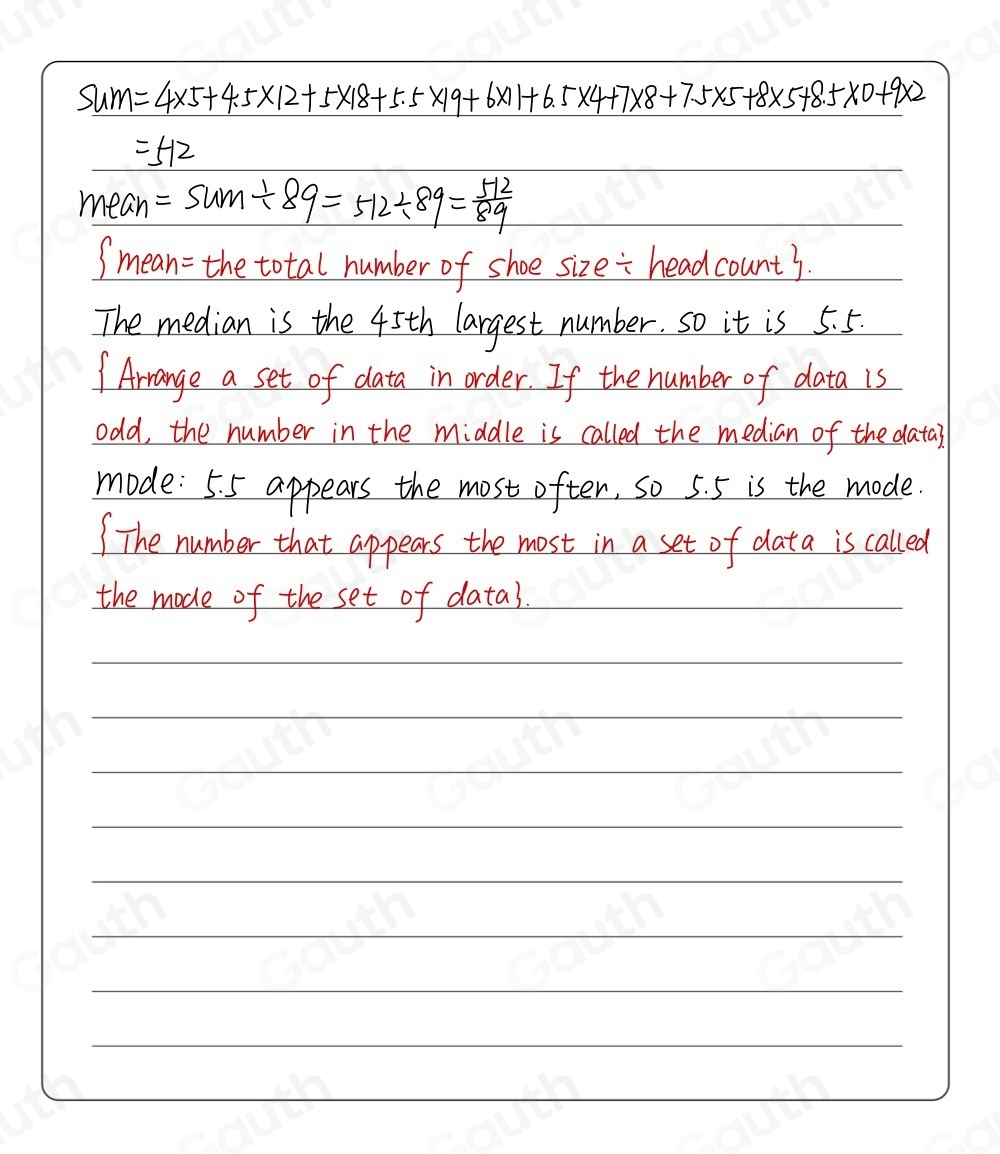 Sum=4×5+4.5×12+5×18+5.5×19+6×11+6.5×4+7×8+7.5×5+8×5+8.5×0+9×2
=512
mean=sum÷89=512÷89=512/89
{mean=the total number of shoe size÷headcount}.
The median is the 45th largest number. so it is 5.5.
{Arrange a set of data in order. If the number of data is
odd, the number in the middle is called the median of the data}.
mode: 5.5 appears the most often, so 5.5 is the mode.
{The number that appears the most in a set of data is called
the mode of the set of data}.